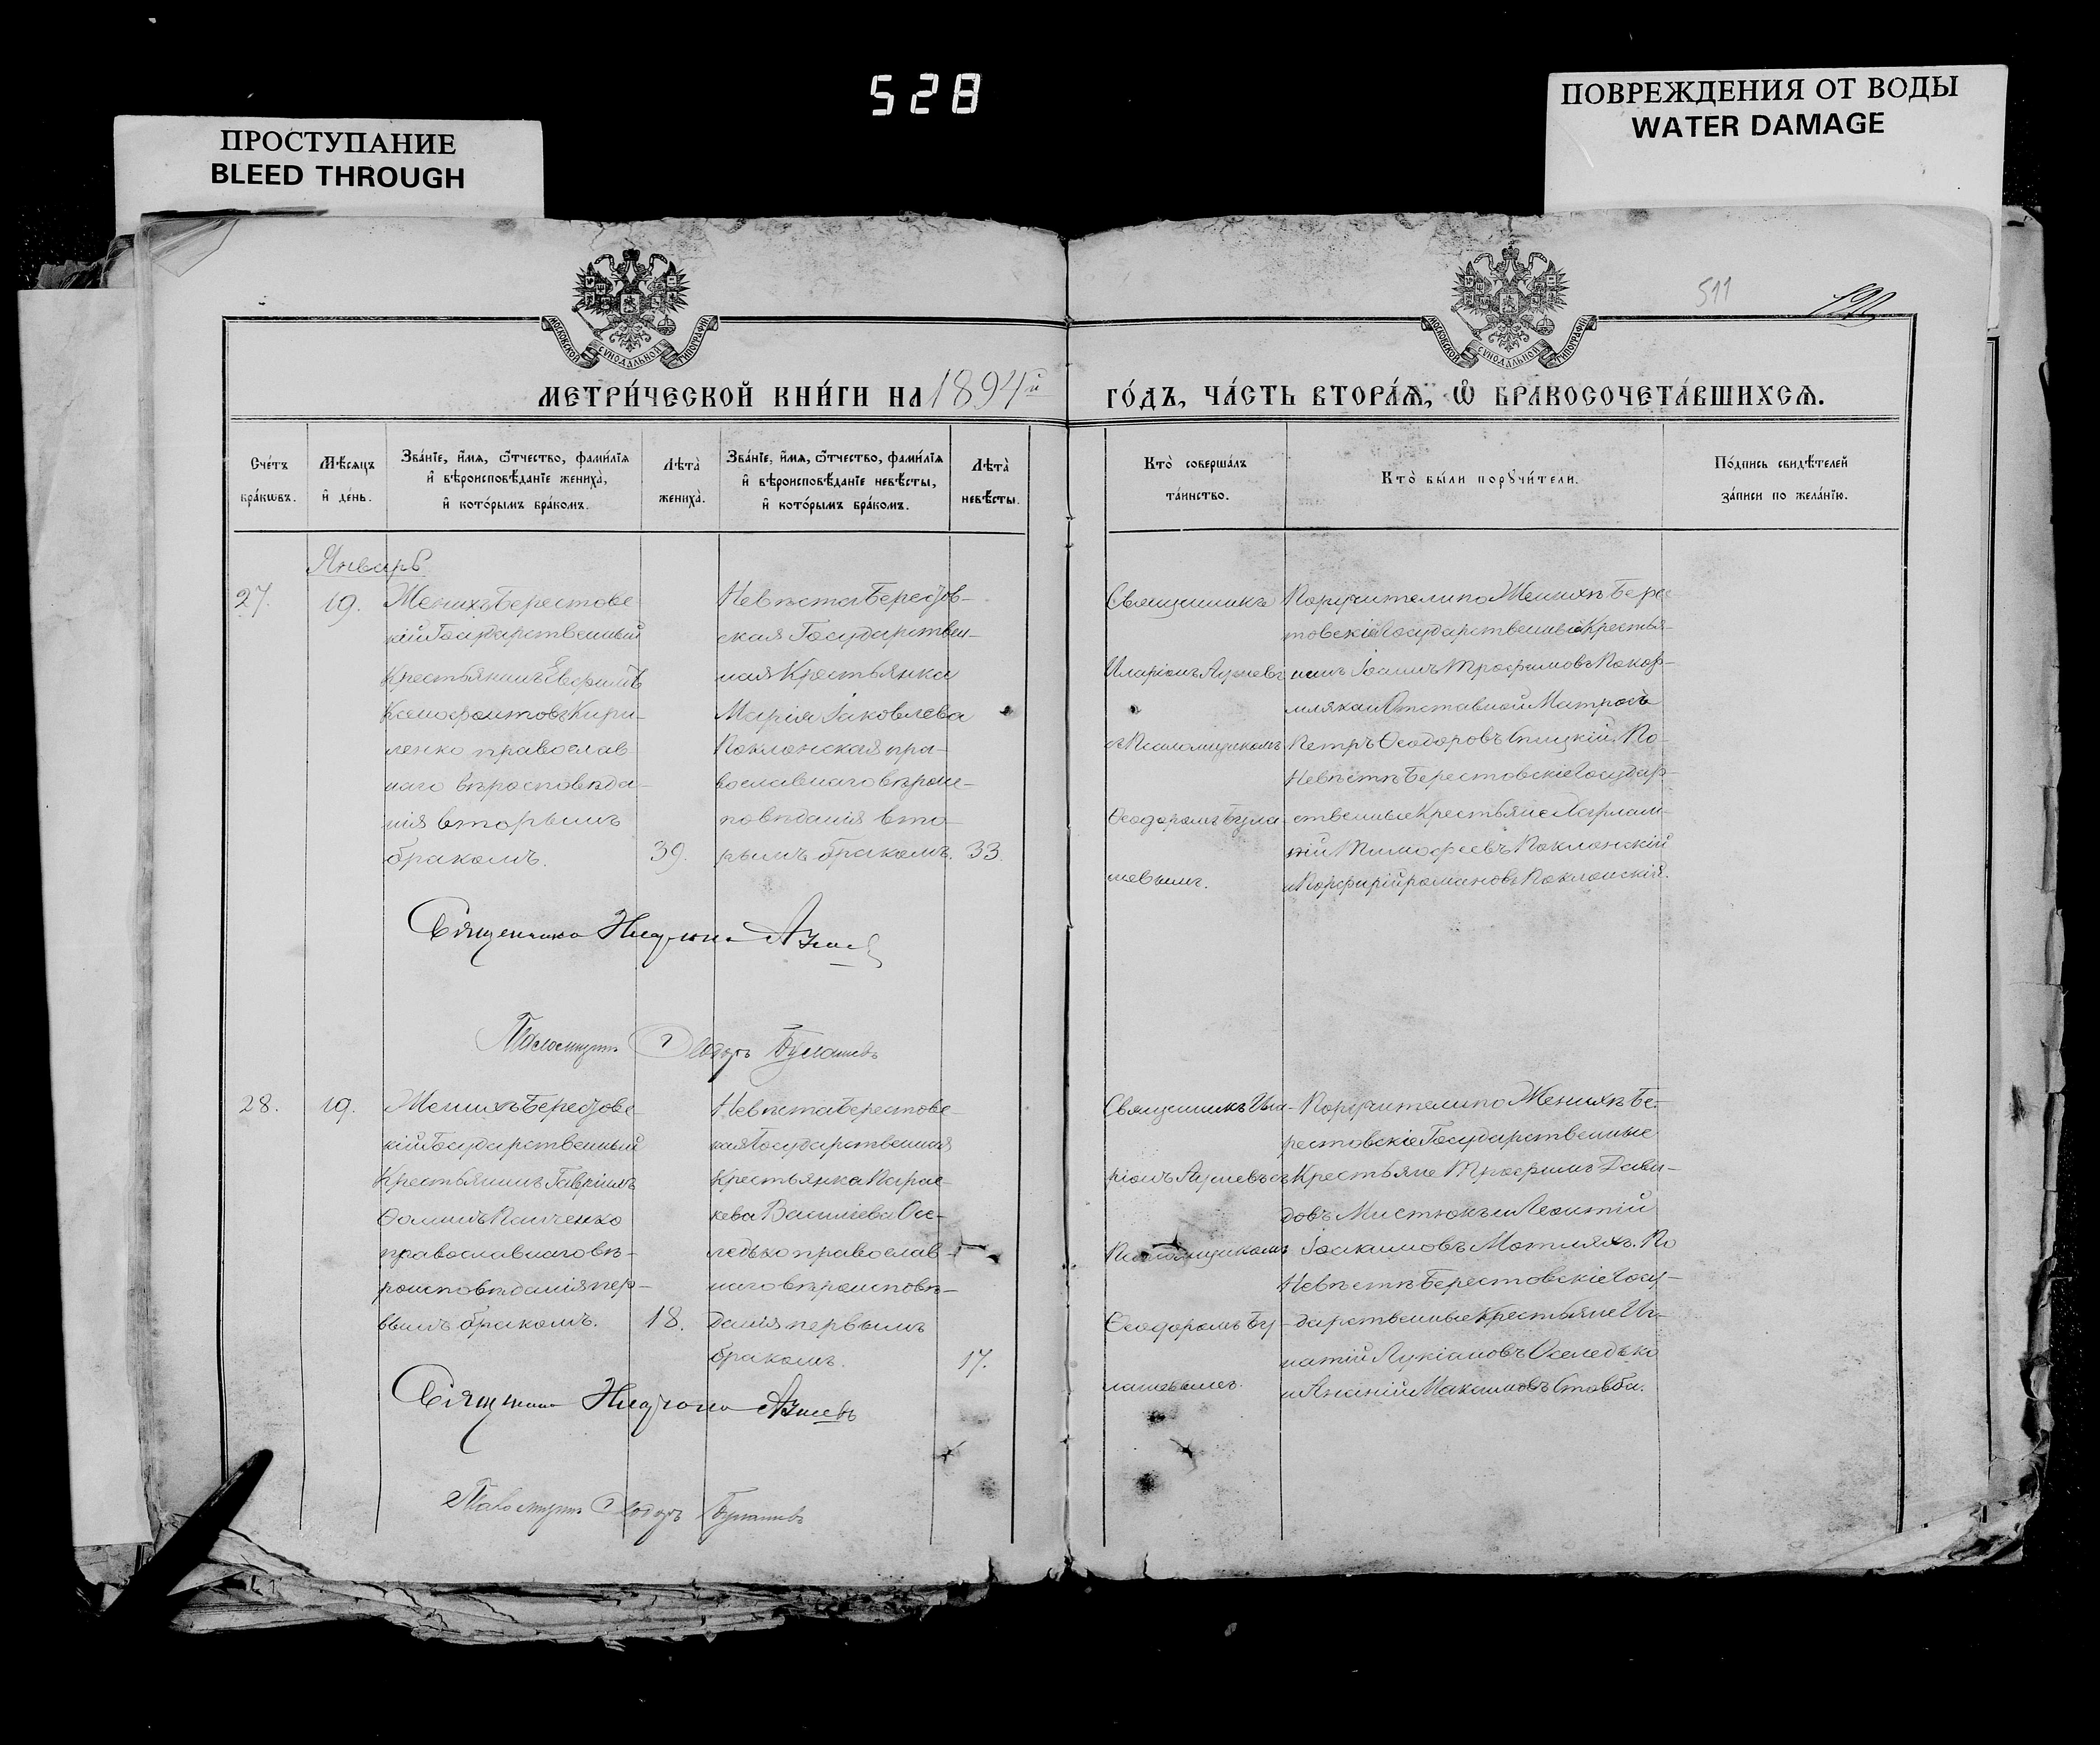 528
ПРОСТУПАНИЕ
BLEED THROUGH
ПОВРЕЖДЕНИЯ ОТ ВОДЫ
WATER DAMAGE
511
МОСКОВСКОЙ СѴНОДАЛЬНОЙ ТИПОГРАФІИ
МОСКОВСКОЙ СѴНОДАЛЬНОЙ ТИПОГРАФІИ
МЕТРИ́ЧЕСКОЙ КНИ́ГИ НА 1894й
ГО́ДЪ, ЧА́СТЬ ВТОРА́Ѧ, Ѽ БРАКОСОЧЕТА́ВШИХСѦ.
Сче́тъ бра́кѡвъ.
Мѣ́сѧцъ и҆ де́нь.
Зва́нїе, и҆́мѧ, ѻ҆́тчество, фами́лїѧ
и҆ вѣроисповѣ́данїе жениха̀,
и҆ кото́рымъ бра́комъ.
Лѣта̀ жениха̀.
Зва́нїе, и҆́мѧ, ѻ҆́тчество, фами́лїѧ
и҆ вѣроисповѣ́данїе невѣ́сты,
и҆ кото́рымъ бра́комъ.
Лѣта̀ невѣ́сты.
Кто̀ соверша́лъ та́инство.
Кто̀ бы́ли порꙋчи́тели.
По́дпись свидѣ́телей за́писи по жела́нїю.
Январь
27.
19.
Женихъ Берестовс
кій Государственный
Крестьянинъ Евфимій
Ксенофонтовъ Кири-
ленко православ
наго вѣроисповѣда-
нія вторымъ
бракомъ.
39.
Невѣста Берестов-
ская Государствен-
ная Крестьянка
Марія Іаковлева
Поклонская пра-
вославнаго вѣроис-
повѣданія вто
рымъ бракомъ.
33.
Священникъ
Иларіонъ Азлевъ
съ Псаломщикомъ
Ѳеодоромъ Була
шевымъ.
Поручители по Женихѣ Бере
товскіе Государственные Крестья-
нинъ Іоаннъ Трофимовъ
и Отставной Матросъ
Петръ Ѳеодоровъ По
Невѣстѣ Берестовскіе Государ-
ственные Крестьяне Харлам-
пій Тимофеевъ Поклонскій
и Порфирій романовъ Поклонскій.
Священникъ Иларіонъ
Псаломщикъ Ѳеодоръ Булашевъ
28.
19.
Женихъ Берестовс
кій Государственный
Крестьянинъ Гавріилъ
Ѳоминъ Панченко
православнаго вѣ-
роисповѣданія пер-
вымъ бракомъ.
18.
Невѣста Берестовс
кая Государственная
Крестьянка Парас
кева Василіева Осе-
ледько православ-
наго вѣроисповѣ-
данія первымъ
бракомъ.
17.
Священникъ Ила-
ріонъ Азлевъ съ
Псаломщикомъ
Ѳеодоромъ Бу-
лашевымъ.
Поручители по Женихѣ Бе-
рестовскіе Государственные
Крестьяне Трофимъ Дави-
довъ Мистюкъ и Леонтій
Іоакимовъ Мотляхъ. По
Невѣстѣ Берестовскіе Госу-
дарственные Крестьяне Иг-
натій Лукіановъ Оселедько
и Ананій Максимовъ Стовба.
Священникъ Иларіонъ
Псаломщикъ Ѳеодоръ Булашевъ